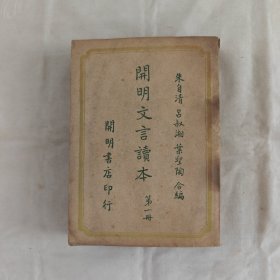 朱自清 呂叔湘 葉聖陶 合編
開明文言讀本
第一冊
開明書店印行